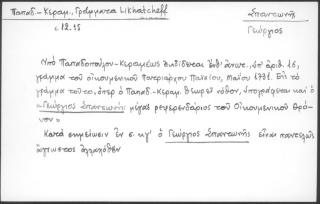 Παπαδ.-Κεραμ., Γράμματα Likhatcheff
Σπαντωνῆς
Γεώργιος
σ. 12. 15
Ὑπὸ Παπαδοπούλου-Κεραμέως ἐκδίδεται ἔνθ' ἀνωτ., ὑπ' ἀριθ. 16,
γράμμα τοῦ οἰκουμενικοῦ πατριάρχου Παϊσίου, Μαΐου 1731. Εἰς τὸ
γράμμα τοῦτο, ὅπερ ὁ Παπαδ.-Κεραμ. θεωρεῖ νόθον, ὑπογράφεται καὶ ὁ
«Γεώργιος Σπαντωνῆς μέγας ρεφερενδάριος τοῦ Οἰκουμενικοῦ θρό-
νου»
Κατὰ σημείωσιν ἐν σ. κγ' ὁ Γεώργιος Σπαντωνῆς εἶναι παντελῶς
ἄγνωστος ἀλλαχόθεν